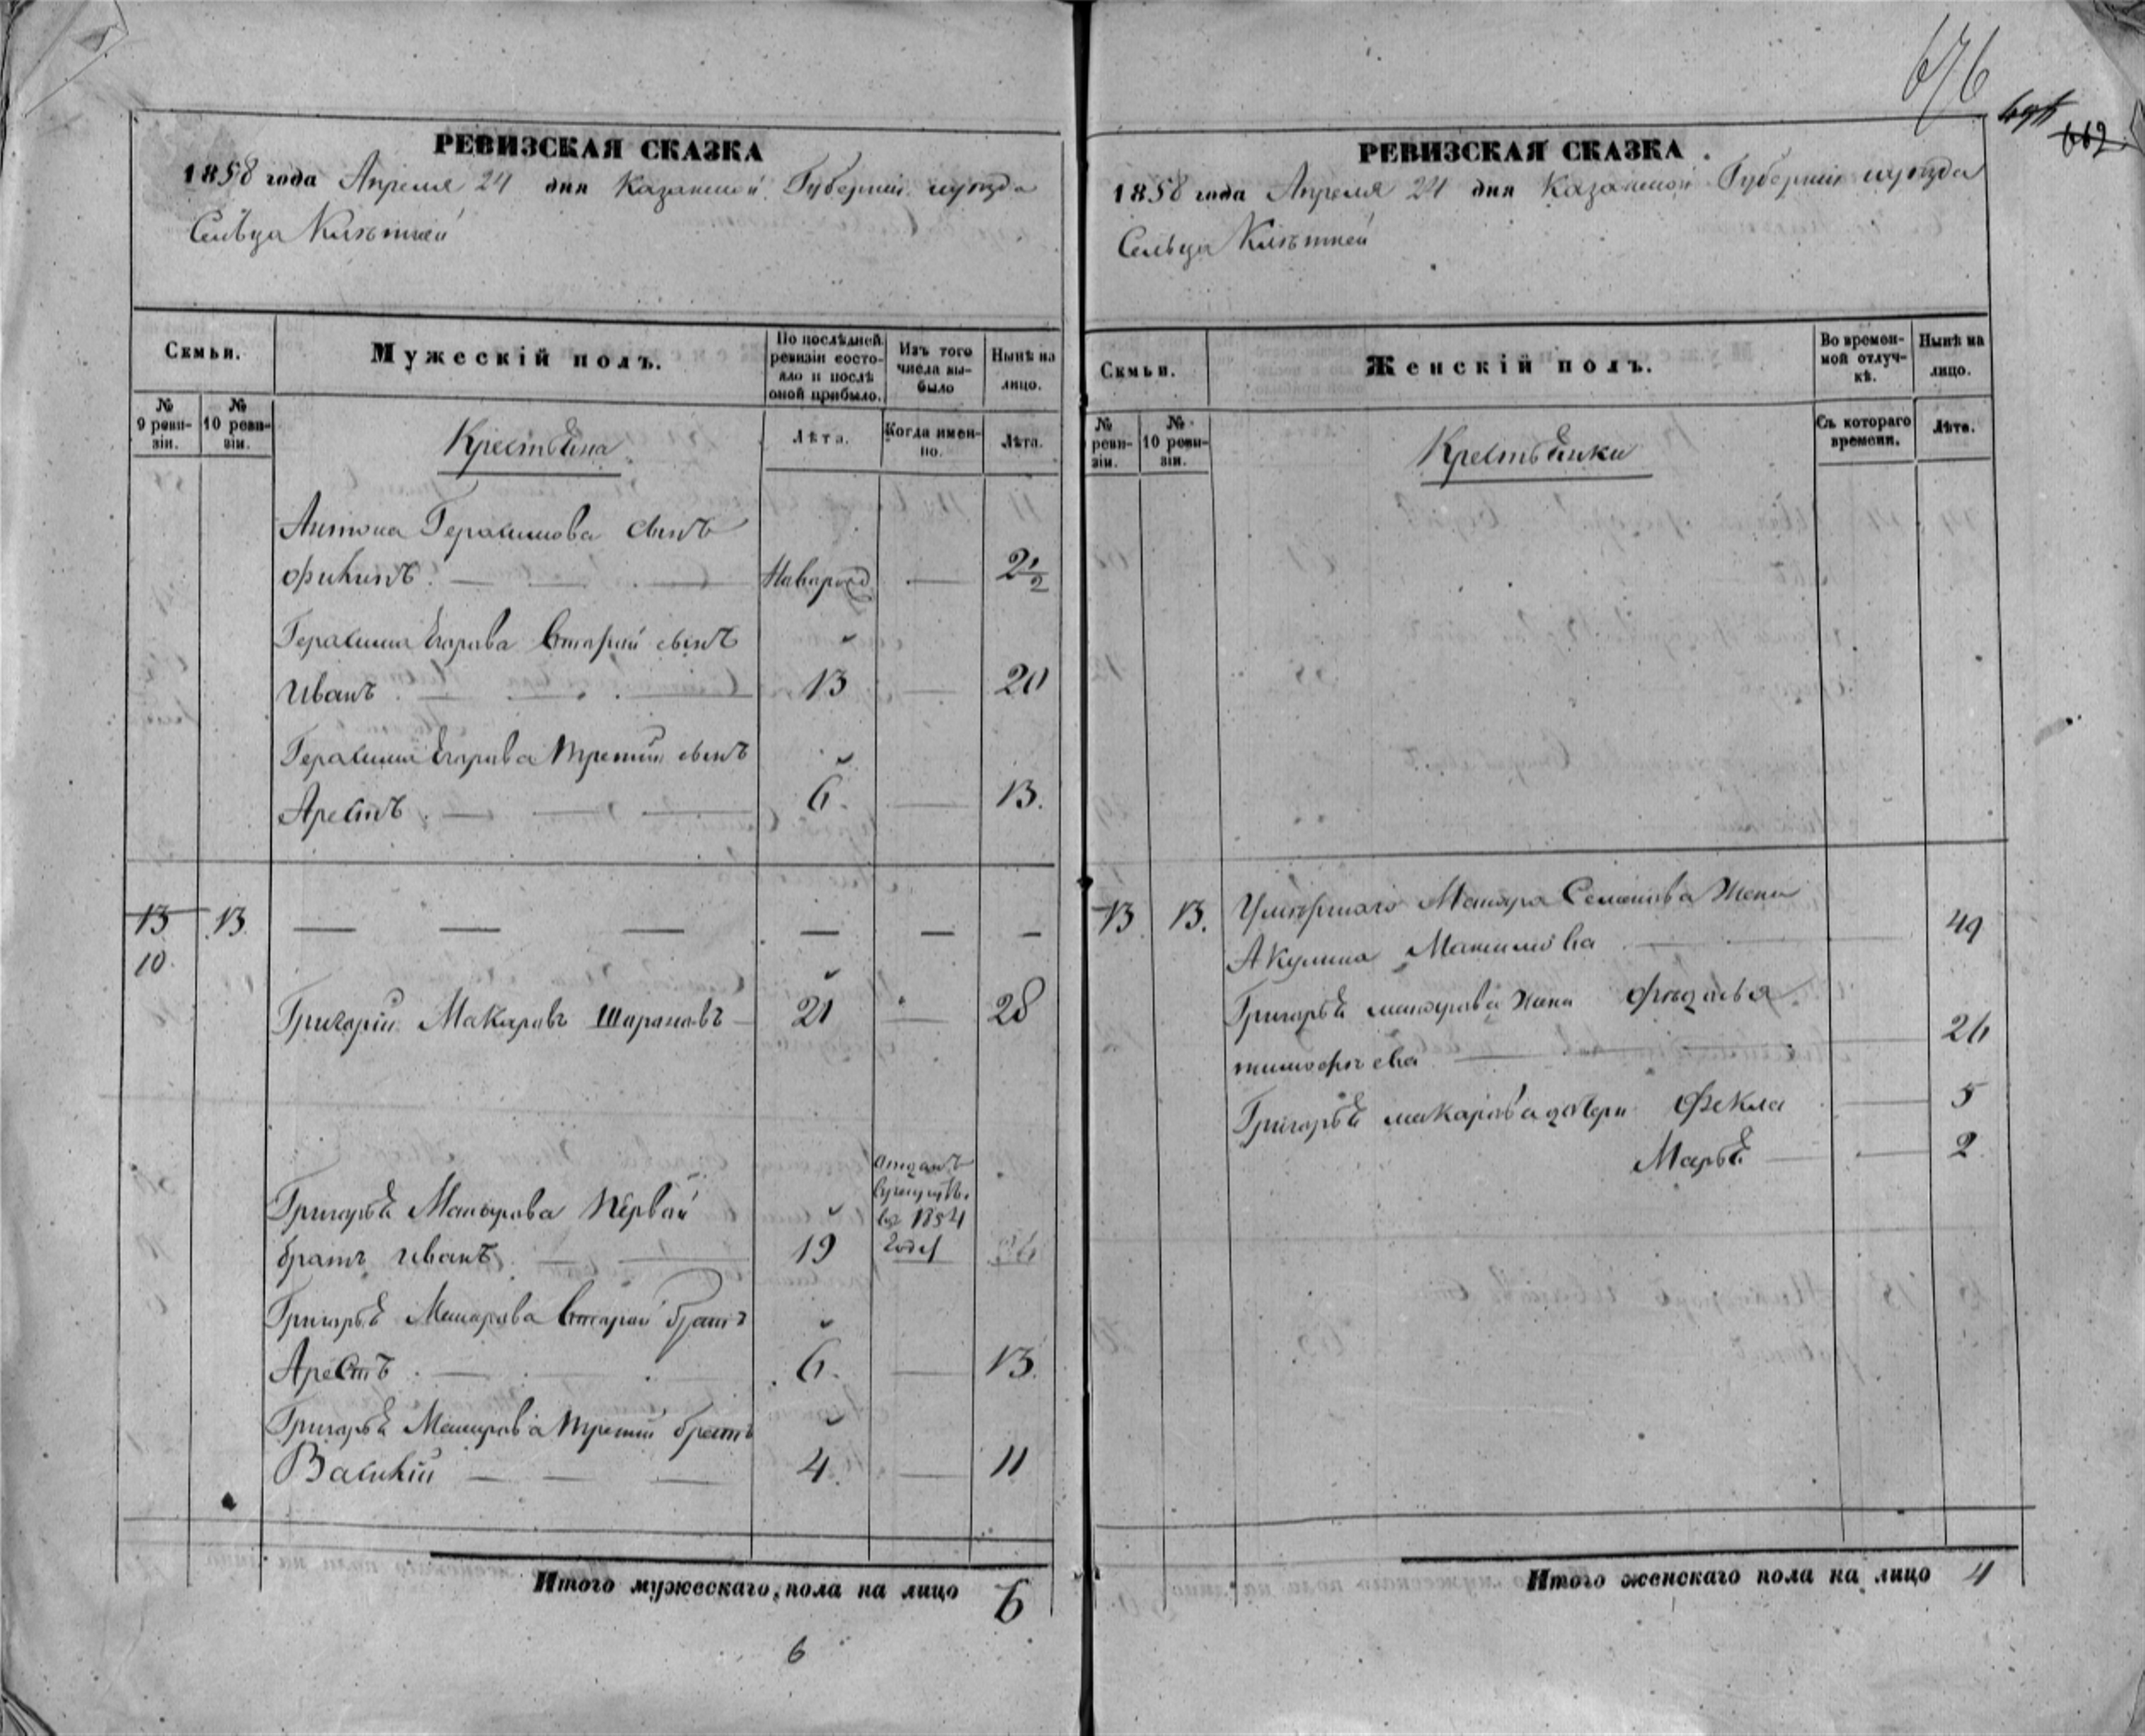 676
РЕВИЗСКАЯ СКАЗКА
1858 года Апреля 24 дня Казанской Губернии и уезда
Сельца
Скмьи.
Мужескій полъ.
По послѣдней ревизіи состояло и послѣ оной прибыло.
Изъ того числа выбыло
Нынѣ на лицо.
№ 9 ревизіи.
№ 10 ревизіи.
Лѣта.
Когда именно.
Лѣта.
Крестьѣна
Антона Герасимова сынъ
Новорож — 2 1/2
Герасима Егорова вторый сынъ
Иванъ — 13 — 20
Герасима Егорова третий сынъ
Арестъ — 6. — 13.
13 13 — — — — — —
10.
Григорiй Макаровъ Шарановъ — 21 — 28
Григорьѣ Макарова первай
братъ иванъ — 19
отданъ
въ 1854
годе
Григорьѣ Макарова вторай братъ
Арестъ — 6. — 13.
Григорьѣ Макарова третий братъ
Василий — 4. — 11
Итого мужескаго пола на лицо 6
6
РЕВИЗСКАЯ СКАЗКА
1858 года Апреля 24 дня Казанской Губернии и уезда
Сельца
Скмьи.
Женскій полъ.
Во временной отлучкѣ.
Нынѣ на лицо.
№ ревизіи.
№ 10 ревизіи.
Съ котораго времени.
Лѣта.
Крестьѣнки
13 13. Умершаго Макара Семенова жена
Акулина Максимова — 49
Григорьѣ макарова жена
тимофѣева — 26
Григорьѣ макарова дочери Фекла — 5
Марьѣ — 2
Итого женскаго пола на лицо 4